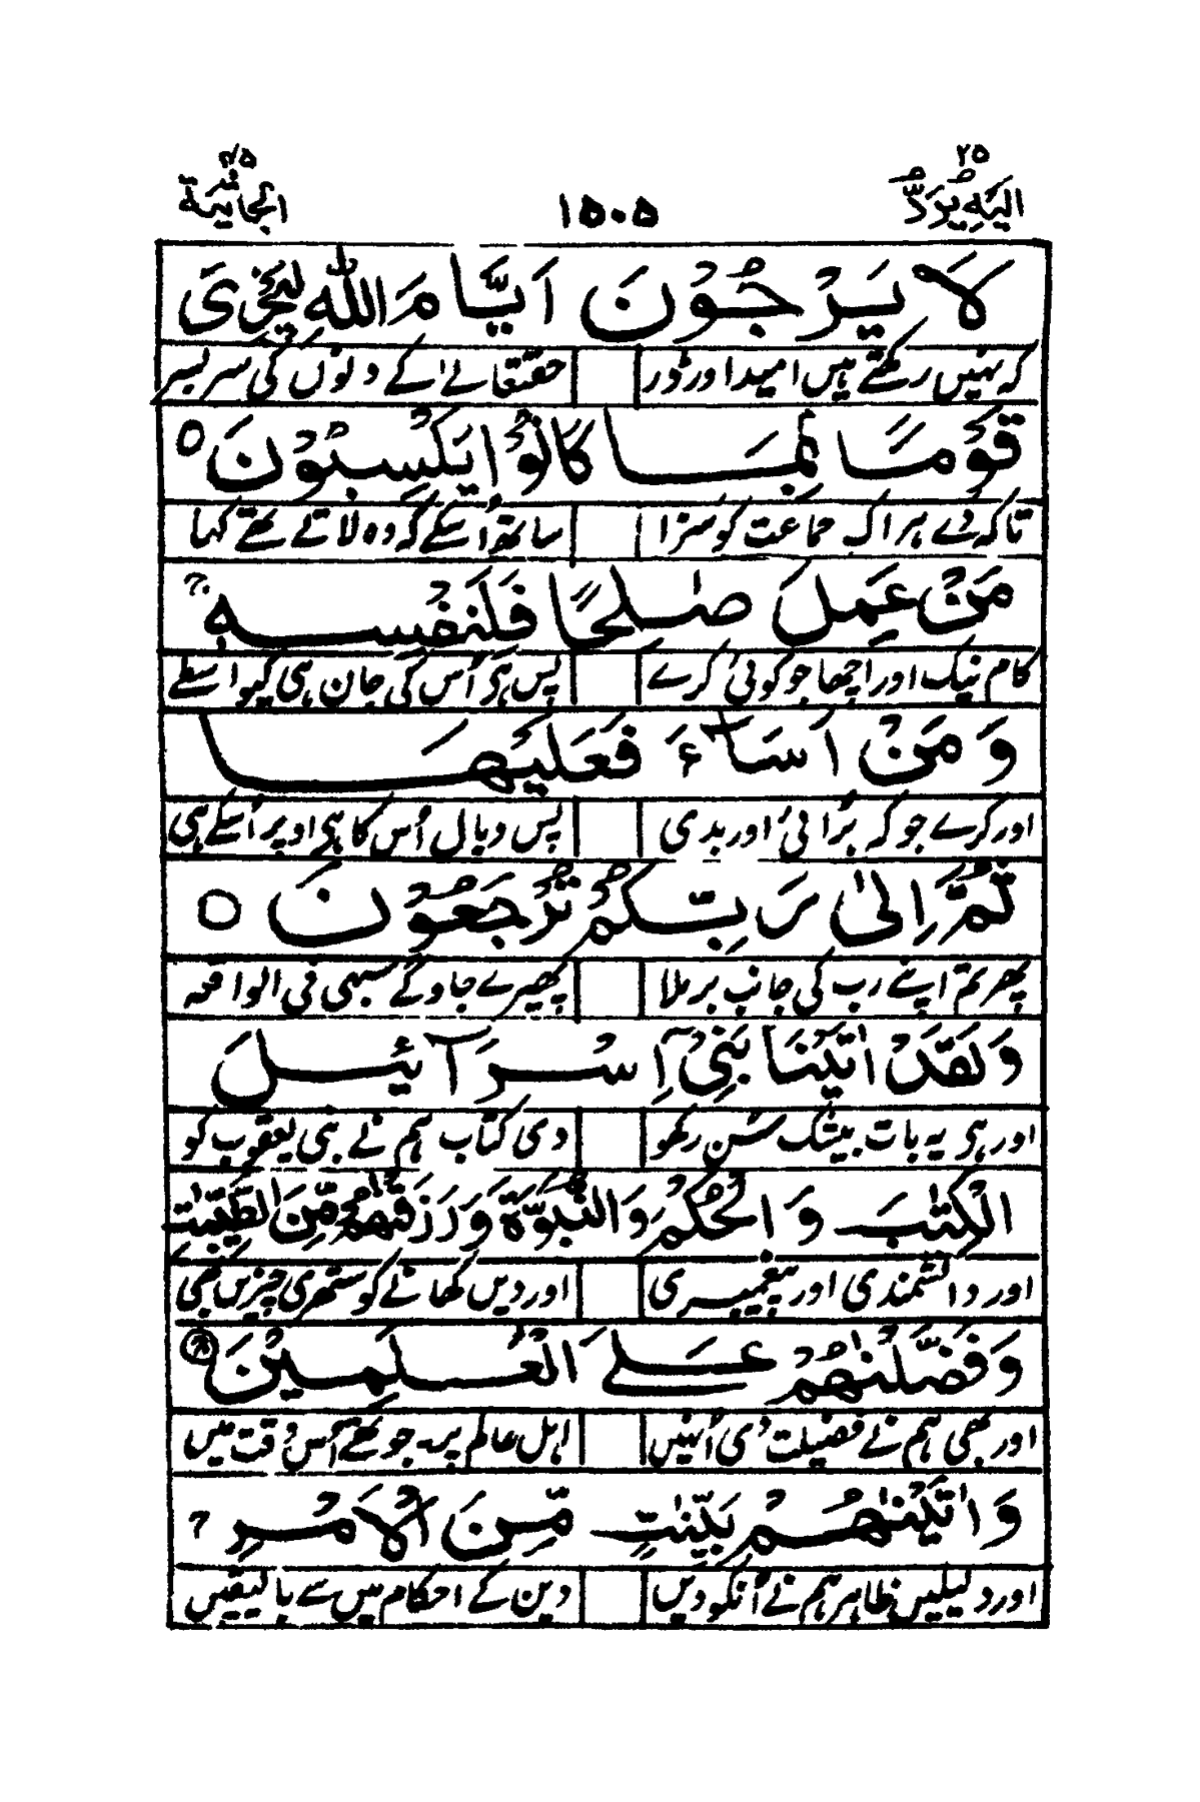 ٢٥
الیه یردّ
١٥٠٥
٤٥
الجاثیة
لَا يَرْجُوْنَ اَيَّامَ اللّٰهِ لِيَجْزِيَ
کہ نہیں رکھتے ہیں امید اور ڈر حقتعالے کے دنوں کی سر بسر
قَوْمًا بِمَا كَانُوْا يَكْسِبُوْنَ ○
تاکہ دے ہر اک جماعت کو سزا ساتھ اُسکے کہ وہ لاتے تھے کما
مَنْ عَمِلَ صٰلِحًا فَلِنَفْسِهٖ ج
کام نیک اور اچھا جو کوئی کرے پس ہے اُس کی جان ہی کیواسطے
وَمَنْ اَسَآءَ فَعَلَيْهَا
اور کرے جو کہ بُرائی اور بدی پس وبال اُس کا ہے اوپر اُسکے ہی
ثُمَّ اِلٰى رَبِّكُمْ تُرْجَعُوْنَ ○
پھر تم اپنے رب کی جانب برملا پھیرے جاوگے سبھی فی الواقعہ
وَلَقَدْ اٰتَيْنَا بَنِيْٓ اِسْرَآئِيْلَ
اور ہے یہ بات بیشک سُن رکھو دی کتاب ہم نے بنی یعقوب کو
الْكِتٰبَ وَالْحُكْمَ وَالنُّبُوَّةَ وَرَزَقْنٰهُمْ مِّنَ الطَّيِّبٰتِ
اور دانشمندی اور پیغمبری اور دیں کھانے کو ستھری چیزیں بھی
وَفَضَّلْنٰهُمْ عَلَى الْعٰلَمِيْنَ
اور بھی ہم نے فضیلت دی اُنہیں اہل عالم پر۔ جو تھے اُس وقت میں
وَاٰتَيْنٰهُمْ بَيِّنٰتٍ مِّنَ الْاَمْرِ ج
اور دلیلیں ظاہر ہم نے اُنکو دیں دین کے احکام میں سے بالیقیں